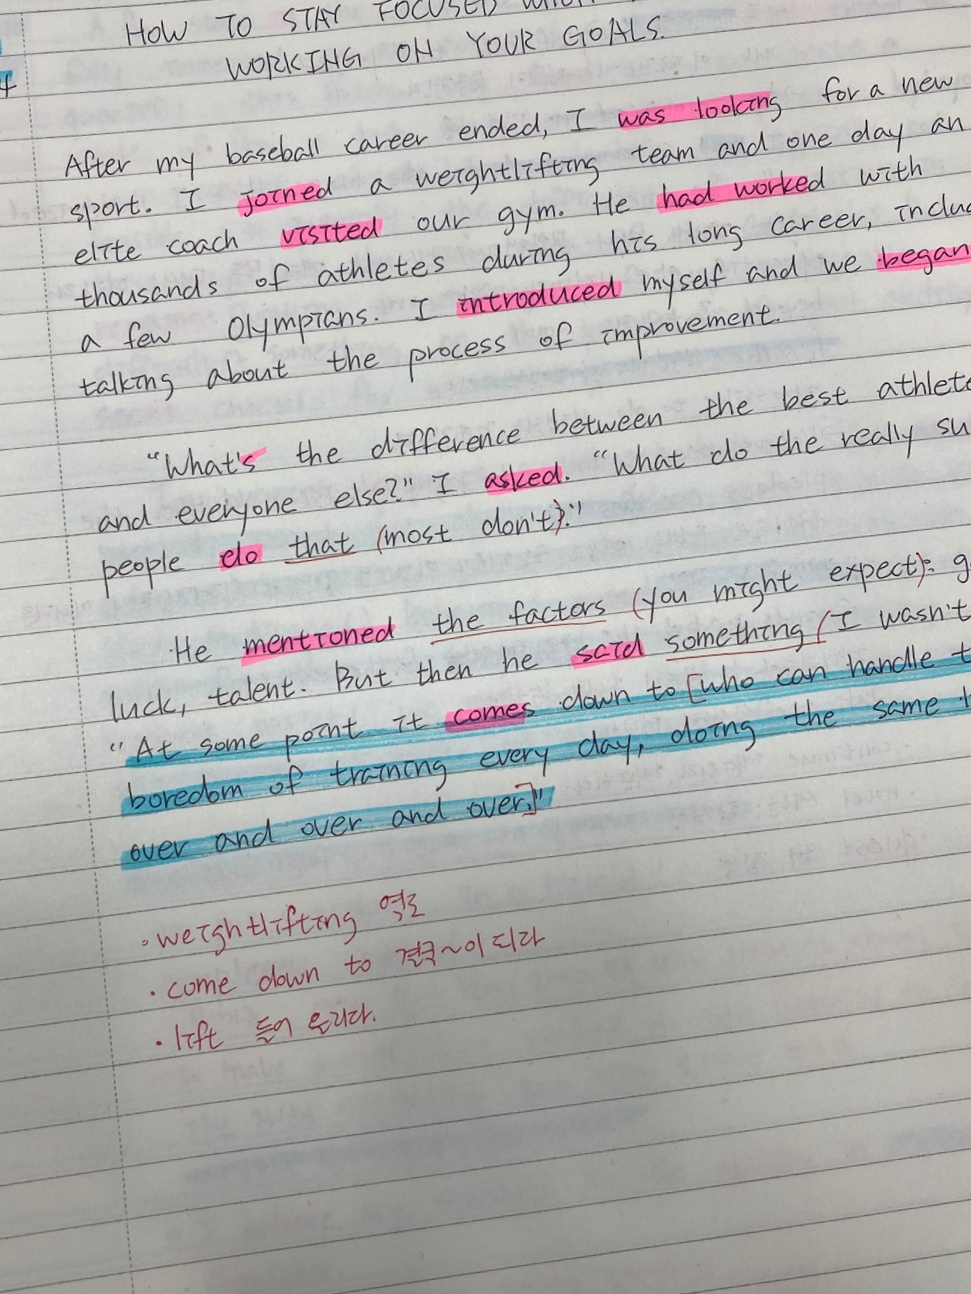 HOW TO STAY FOCUSED
WORKING ON YOUR GOALS.
After my baseball career ended, I was looking for a new
sport. I joined a weightlifting team and one day an
elite coach visited our gym. He had worked with
thousands of athletes during his long career, includ
a few Olympians. I introduced myself and we began
talking about the process of improvement.
"What's the difference between the best athlete
and everyone else?" I asked. "What do the really su
people do that (most don't)."
He mentioned the factors (you might expect): g
luck, talent. But then he said something (I wasn't
"At some point it comes down to [who can handle t
boredom of training every day, doing the same l
over and over and over.]"
· weightlifting 역도
· come down to 결국~이 되다
· lift 들어 올리다.